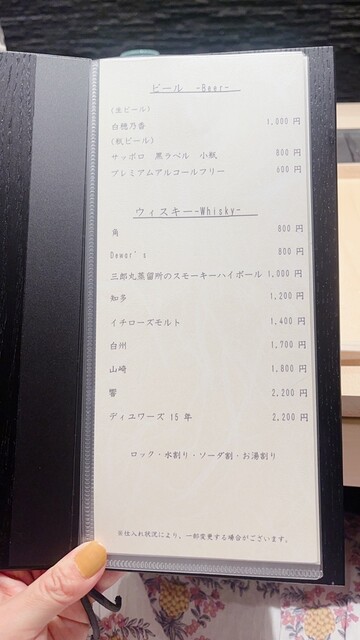 ビール -Beer-
(生ビール)
白穂乃香 1,000 円
(瓶ビール)
サッポロ 黒ラベル 小瓶 800 円
プレミアムアルコールフリー 600 円
ウィスキー-Whisky-
角 800 円
Dewar's 800 円
三郎丸蒸留所のスモーキーハイボール 1,000 円
知多 1,200 円
イチローズモルト 1,400 円
白州 1,700 円
山崎 1,800 円
響 2,200 円
ディユワーズ 15 年 2,200 円
ロック・水割り・ソーダ割・お湯割り
※仕入れ状況により、一部変更する場合がございます。